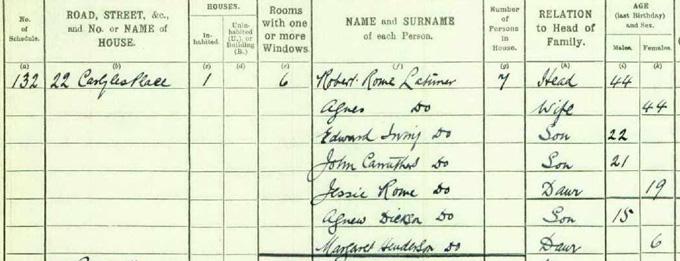 No. of Schedule. ROAD, STREET, &c., and No. or NAME of HOUSE. HOUSES. Inhabited. Uninhabited (U.), or Building (B.) Rooms with one or more Windows. NAME and SURNAME of each Person. Number of Persons in House. RELATION to Head of Family. AGE (last Birthday) and Sex. Males. Females.
(a) (b) (c) (d) (e) (f) (g) (h) (i) (k)
132 22 Carlyles Place 1 6 Robert Rome Latimer 7 Head 44
Agnes Do Wife 44
Edward Irving Do Son 22
John Carruthers Do Son 21
Jessie Rome Do Daur 19
Agnew Dickson Do Son 15
Margaret Henderson Do Daur 6